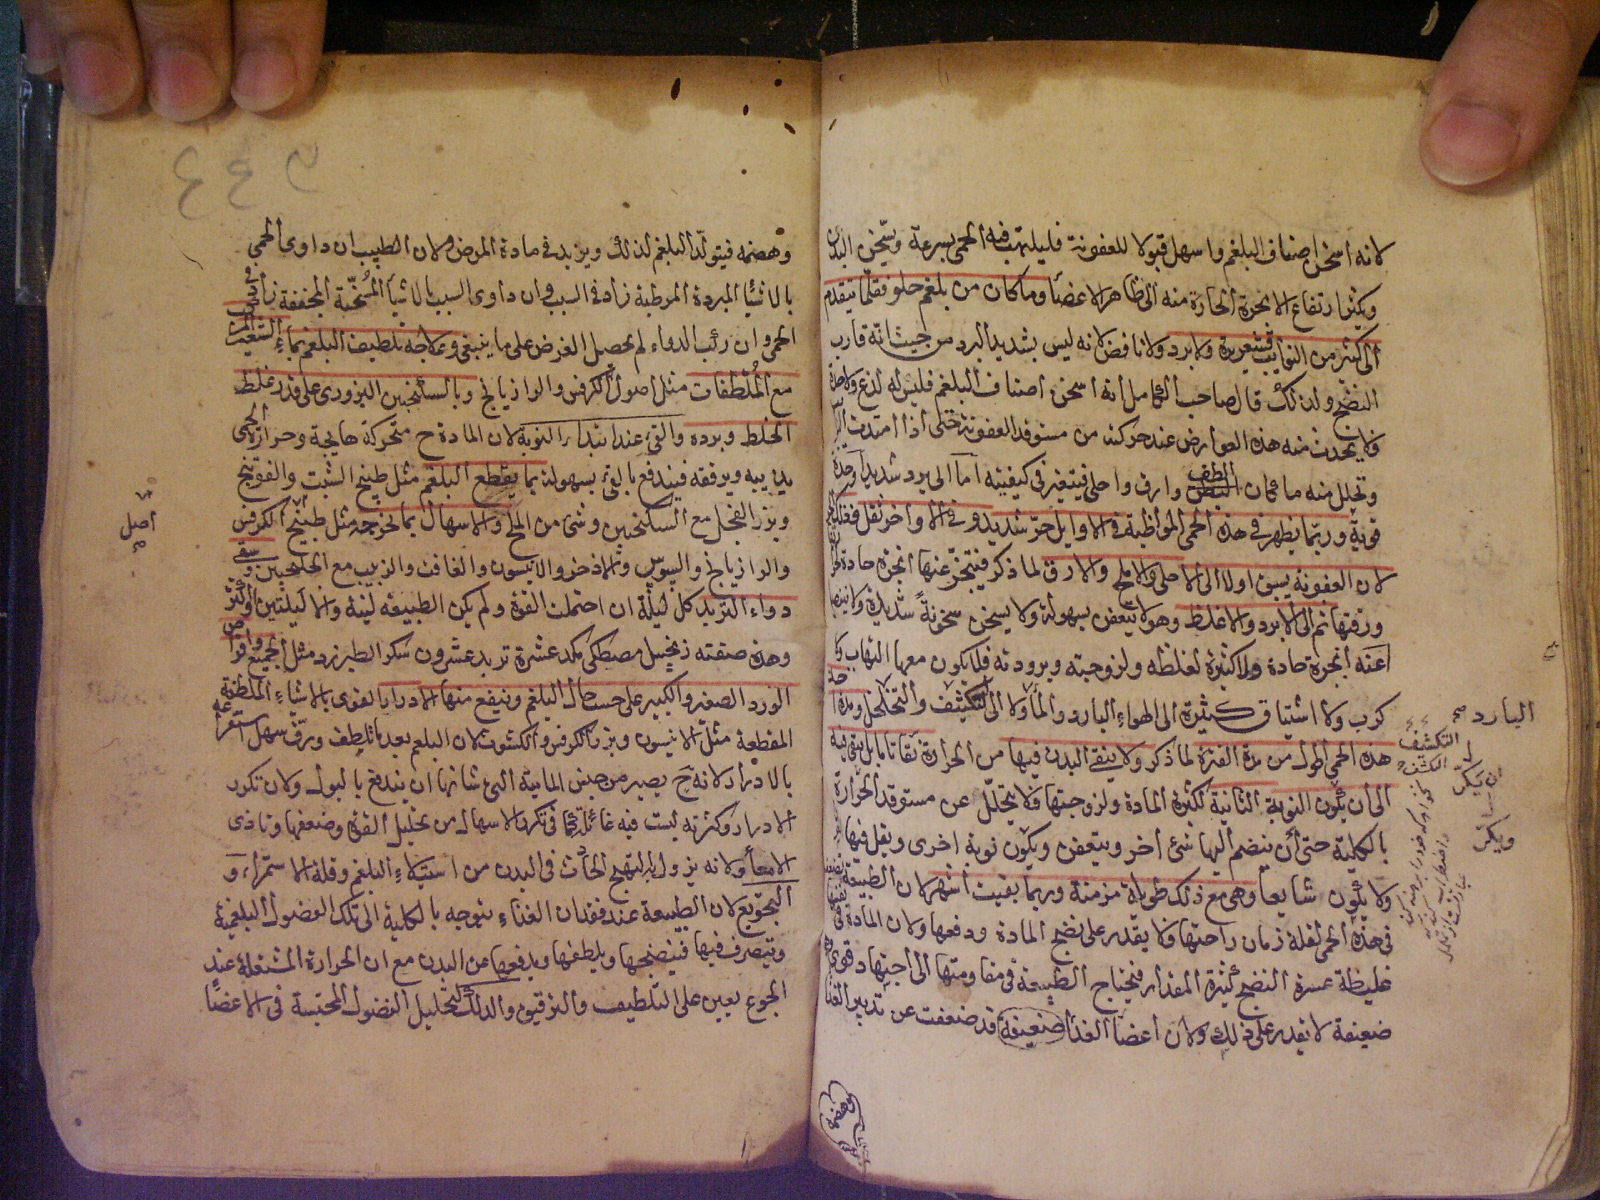 لانه اسخن اصناف البلغم واسهل قبولا للعفونة فليلتهب فيه الحمى بسرعة ويسخن البدن
ويكثر ارتفاع الابخرة الحارة منه الى ظاهر الاعضا وما كان من بلغم حلو فقلما يتقدم
الكثير من النوايب قشعريرة ولا برد ولا نافض لانه ليس بشديد البرد من حيث انه قارب
النضج ولذلك قال صاحب الكامل انه اسخن اصناف البلغم فليس له لذع ولا حدة
فلا يحدث منه هذه العوارض عند حركته من مستوقد العفونة حتى اذا امتدت
وتحلل منه ما كان الطف وارق واحلى فيتغير في كيفيته اما الى برد شديد او حدة
قوية وربما يظهر في هذه الحمى المواظبة في الاوايل حر شديد و في الاواخر نقل
لان العفونة يسبق اولا الى الاحلى والاملح والارق لما ذكر فيتبخر عنها ابخرة حادة
ورقتها ثم الى الابرد والاغلظ وهو لا يتعفن بسهولة ولا يسخن سخونة شديدة ولا
عنه ابخرة حادة ولا كثيرة لغلظه ولزوجته وبرودته فلا يكون معها التهاب ولا
كرب ولا اشتياق كثيرة الى الهواء البارد والماء ولا الى التكشف والتخلخل ومدة
هذه الحمى اطول من مدة الفترة لما ذكر ولا ينقى البدن فيها من الحرارة نقا تاما بل يبقى فيه
الى ان يكون النوبة الثانية لكثرة المادة ولزوجتها فلا يتحلل عن مستوقد الحرارة
بالكلية حتى ان ينضم اليها شئ اخر ويتعفن ويكون نوبة اخرى ويقل فيها
ولا يكون شايعا وهى مع ذلك طويلة مزمنة وربما بقيت اشهر لان الطبيعة
في هذه الحمى لقلة زمان راحتها فلا يقدر على نضج المادة ودفعها ولان المادة
غليظة عسرة النضج كثيرة المقدار فيحتاج الطبيعة في مقاومتها الى
ضعيفة لا يقدر على ذلك ولان اعضا الغذا ضعيفة قد ضعفت عن تدبير الغذا
وهضمه
البارد صح
التكشف
ويكر
وهضمه فيتولد البلغم لذلك ويزيد في مادة المرض ولان الطبيب ان داوى الحمى
بالاشيا المبردة المرطبة زاد في السبب وان داوى السبب بالاشيا المسخنة المجففة زاد في
الحمى وان ركب الدواء لم يحصل الغرض على ما ينبغي وعلاجه تلطيف البلغم بماء الشعير
مع الملطفات مثل اصول الكرفس والرازيانج وبالسكنجبين البزورى على قدر غلظ
الخلط وبرده والقئ عند ابتداء النوبة لان المادة ح متحركة هايجة وحرارة الحمى
يذيبه ويرققه فيندفع بالقئ بسهولة بما يقطع البلغم مثل طبيخ الشبت والفوتنج
وبزر الفجل مع السكنجبين وشئ من الملح والاسهال بما يخرجه مثل طبيخ الكرفس
والرازيانج والسوس والاذخر والانيسون والغافت والزبيب مع الجلنجبين وسقى
دواء التربد كل ليلة ان احتملت القوة ولم يكن الطبيعة لينة والا ليلتين او اكثر
وهذه صفته زنجبيل مصطكى كد عشرة تربد عشرون سكر الطبرزد مثل الجميع واقراص
الورد الصغير والكبير على حسب حال البلغم وينفع منها الادرار القوى بالاشياء الملطفة
المقطعة مثل الانيسون وبزر الكرفس والكشوث لان البلغم بعد ما تلطف ورق سهل استفراغه
بالادرار لانه ح يصير من جنس المائية التى شانها ان يندفع بالبول ولان تكرر
الادرار وكثرته ليست فيه غائلة كما في تكرر الاسهال من تحليل القوة وضعفها وتاذى
الامعا ولانه يزول به التهيج الحادث في البدن من استيلاء البلغم وقلة الاستمراء و
التجويع لان الطبيعة عند فقدان الغذاء يتوجه بالكلية الى تلك الفضول البلغمية
ويتصرف فيها فينضجها ويلطفها ويدفعها عن البدن مع ان الحرارة المشتعلة عند
الجوع يعين على التلطيف والترقيق والدلك لتحليل الفضول المحتبسة في الاعضا
اصل